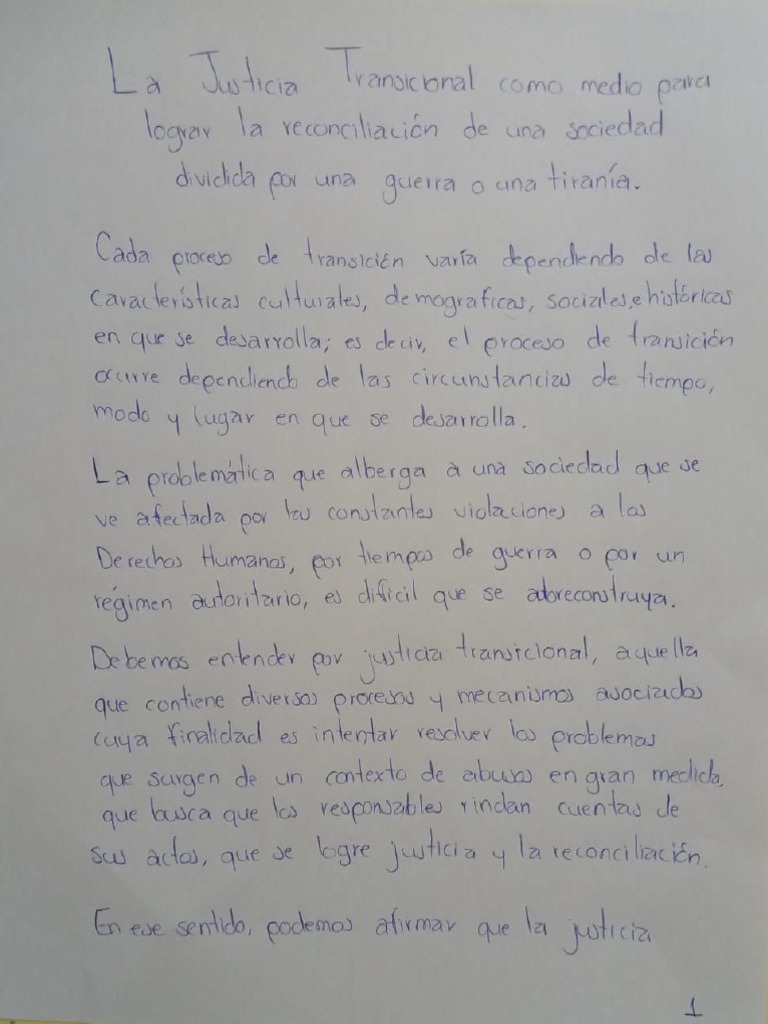 La Justicia Transicional como medio para
lograr la reconciliación de una sociedad
dividida por una guerra o una tiranía.
Cada proceso de transición varía dependiendo de las
características culturales, demograficas, sociales, e históricas
en que se desarrolla; es decir, el proceso de transición
ocurre dependiendo de las circunstancias de tiempo,
modo y lugar en que se desarrolla.
La problemática que alberga a una sociedad que se
ve afectada por las constantes violaciones a los
Derechos Humanos, por tiempos de guerra o por un
régimen autoritario, es difícil que se
Debemos entender por justicia transicional, aquella
que contiene diversos procesos y mecanismos asociados
cuya finalidad es intentar resolver los problemas
que surgen de un contexto de abusos en gran medida,
que busca que los responsables rindan cuentas de
sus actos, que se logre justicia y la reconciliación.
En ese sentido, podemos afirmar que la justicia
1